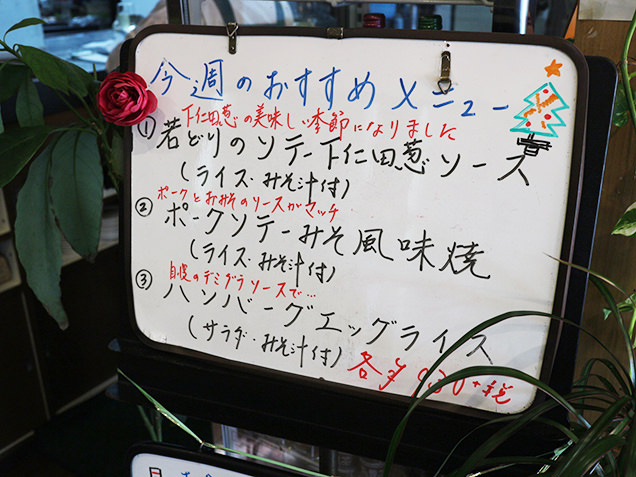 今週のおすすめメニュー
下仁田葱の美味しい季節になりました
① 若どりのソテー下仁田葱ソース
(ライス・みそ汁付)
ポークとおみそのソースがマッチ
② ポークソテーみそ風味焼
(ライス・みそ汁付)
自慢のデミグラソースで…
③ ハンバーグエッグライス
(サラダ・みそ汁付)
各¥930+税